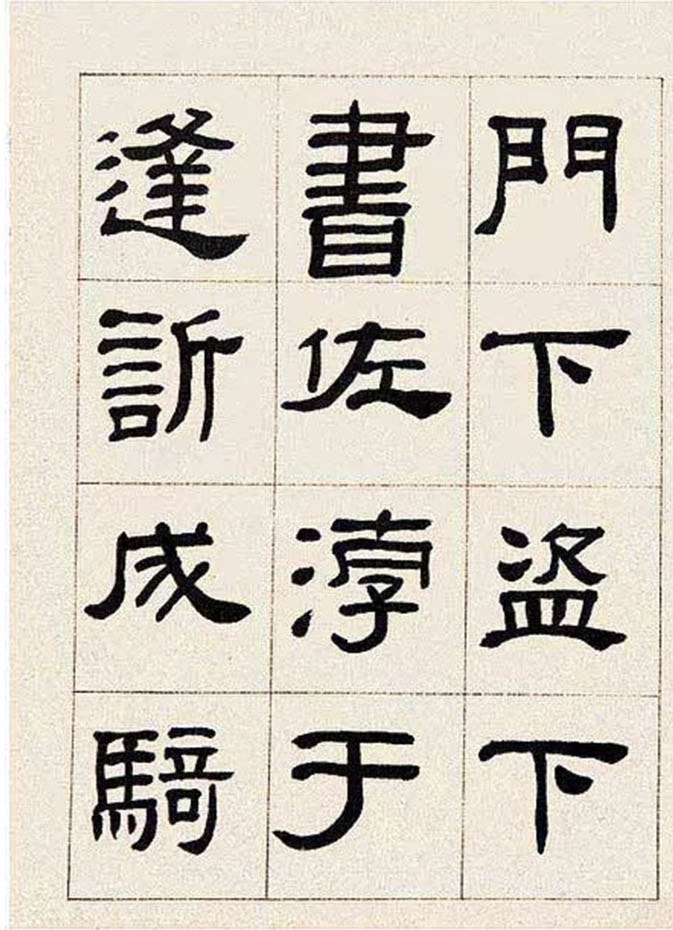 門下盜下
書佐浡于
逢訢成騎